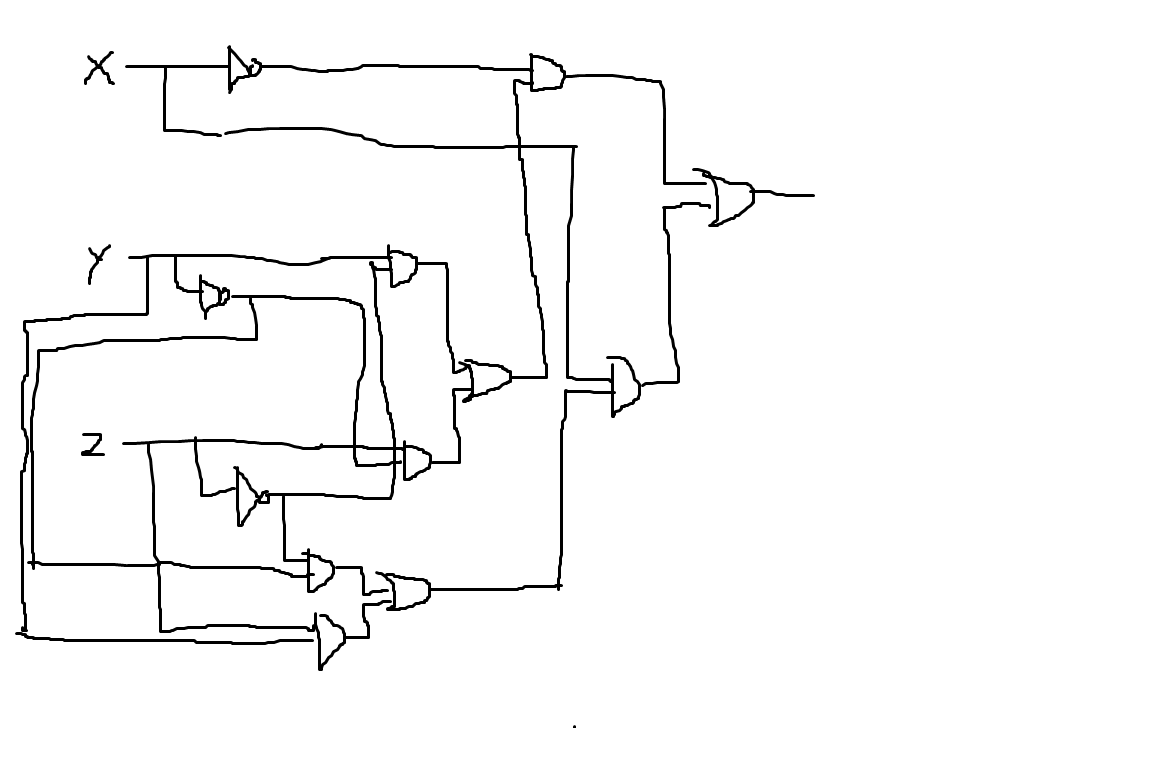 X
Y
Z